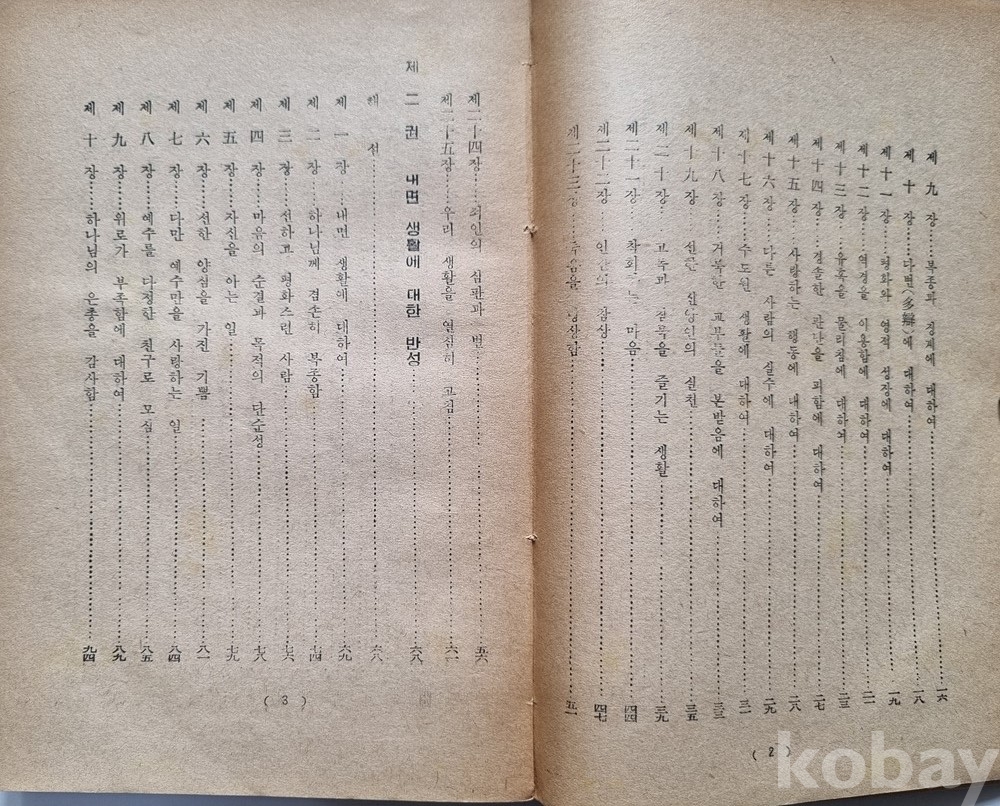 제 九 장……복종과 징계에 대하여………一六
제 十 장……다변(多辯)에 대하여………一八
제十一장……평화와 영적 성장에 대하여………一九
제十二장……역경을 이용함에 대하여………二一
제十三장……유혹을 물리침에 대하여………二三
제十四장……경솔한 판단을 피함에 대하여………二七
제十五장……사랑하는 행동에 대하여………二八
제十六장……다른 사람의 실수에 대하여………二九
제十七장……수도원 생활에 대하여………三一
제十八장……거룩한 교부들을 본받음에 대하여………三三
제十九장……선한 신앙인의 실천………三五
제二十장……고독과 침묵을 즐기는 생활………三九
제二十一장……참회하는 마음………四四
제二十二장……인간의 참상………四七
제二十三장……죽음을 명상함………五一
(2)
제二十四장……죄인의 심판과 벌………五六
제二十五장……우리 생활을 열심히 고침………六一
제 二 권 내면 생활에 대한 반성………六八
해 설………六八
제 一 장……내면 생활에 대하여………六九
제 二 장……하나님께 겸손히 복종함………七四
제 三 장……선하고 평화스런 사람………七六
제 四 장……마음의 순결과 목적의 단순성………七八
제 五 장……자신을 아는 일………七九
제 六 장……선한 양심을 가진 기쁨………八一
제 七 장……다만 예수만을 사랑하는 일………八四
제 八 장……예수를 다정한 친구로 모심………八五
제 九 장……위로가 부족함에 대하여………八九
제 十 장……하나님의 은총을 감사함………九四
(3)
kobay